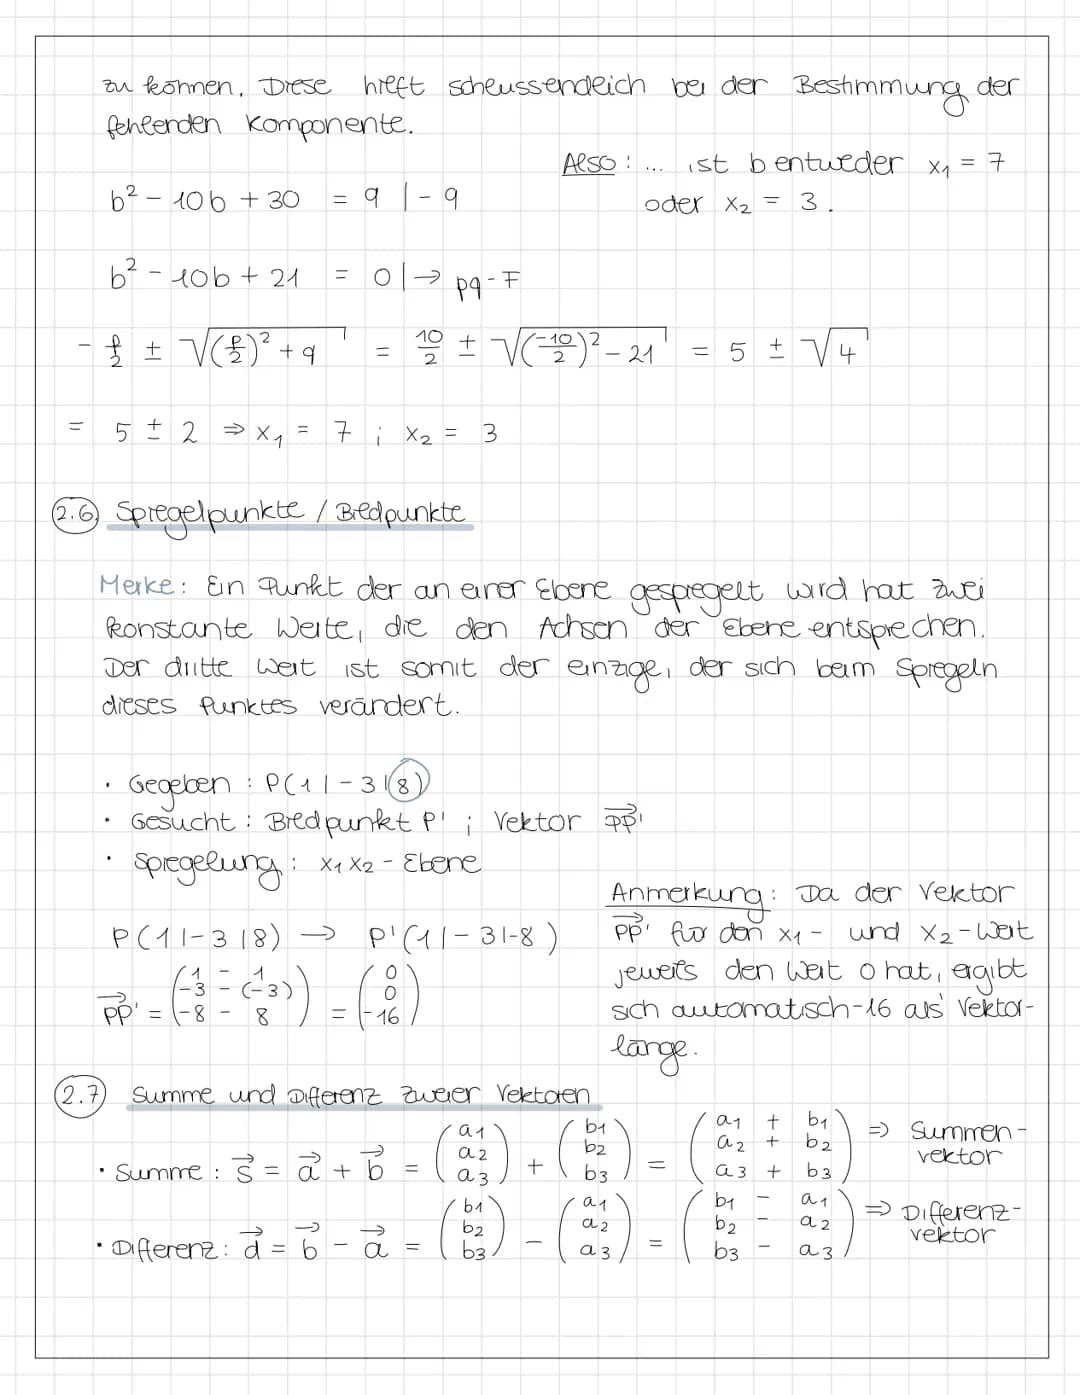 zu können. Diese hilft schlussendlich bei der Bestimmung der
fehlenden Komponente.
Also: ... ist b entweder x₁ = 7
oder x₂ = 3.
b² - 10b + 30 = 9 | - 9
b² - 10b + 21 = 0 | → pq-F
- p/2 ± √((p/2)² + q) = 10/2 ± √((-10/2)² - 21) = 5 ± √4
= 5 ± 2 ⇒ x₁ = 7 ; x₂ = 3
2.6 Spiegelpunkte / Bildpunkte
Merke: Ein Punkt der an einer Ebene gespiegelt wird hat zwei
konstante Werte, die den Achsen der Ebene entsprechen.
Der dritte Wert ist somit der einzige, der sich beim Spiegeln
dieses Punktes verändert.
• Gegeben : P(1|-3|8)
• Gesucht : Bildpunkt P' ; Vektor PP'→
• Spiegelung : x₁x₂ - Ebene
P(1|-3|8) → P'(1|-3|-8)
PP'→ = (1 - 1, -3 - (-3), -8 - 8) = (0, 0, -16)
Anmerkung: Da der Vektor
PP'→ für den x₁- und x₂-Wert
jeweils den Wert 0 hat, ergibt
sich automatisch -16 als Vektor-
länge.
2.7 Summe und Differenz zweier Vektoren
• Summe : s→ = a→ + b→ = (a₁, a₂, a₃) + (b₁, b₂, b₃) = (a₁ + b₁, a₂ + b₂, a₃ + b₃) ⇒ Summen-
vektor
• Differenz : d→ = b→ - a→ = (b₁, b₂, b₃) - (a₁, a₂, a₃) = (b₁ - a₁, b₂ - a₂, b₃ - a₃) ⇒ Differenz-
vektor